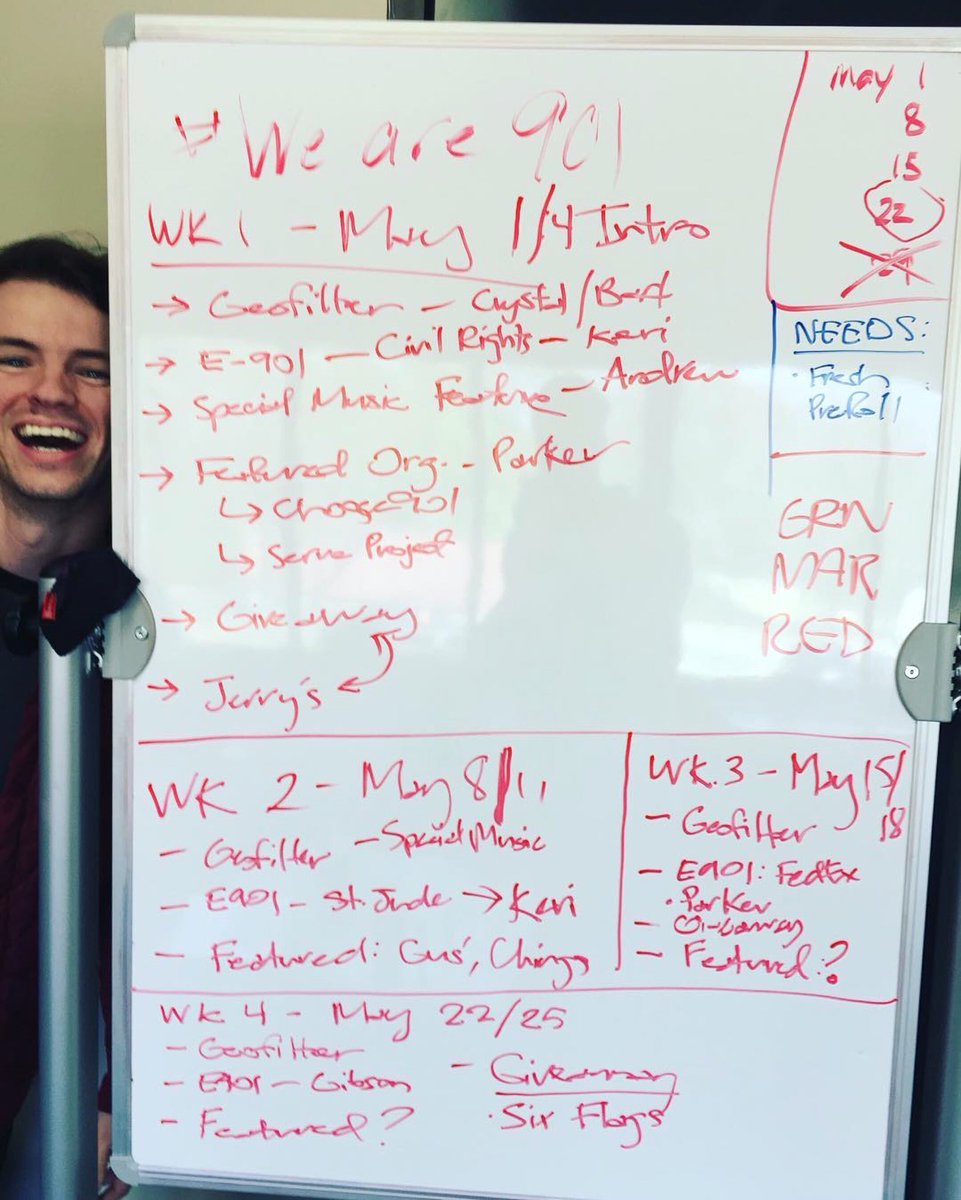 # We are 901
WK 1 - May 1/4 Intro
→ Geofilter - Crystal/Bert
→ E-901 - Civil Rights - Keri
→ Special Music Feature - Andrew
→ Featured Org. - Parker
↳ Choose901
↳ Serve Project
→ Giveaway
→ Jerry's
May 1
8
15
22
29
NEEDS:
· Fresh
PreRoll
GRN
MAR
RED
WK 2 - May 8/11
- Geofilter - Special Music
- E901 - St. Jude → Keri
- Featured: Gus',
WK.3 - May 15/
18
- Geofilter
- E901: FedEx
· Parker
- Giveaway
- Featured:?
WK 4 - May 22/25
- Geofilter
- E901 - Gibson
- Featured?
- Giveaway
· Six Flags